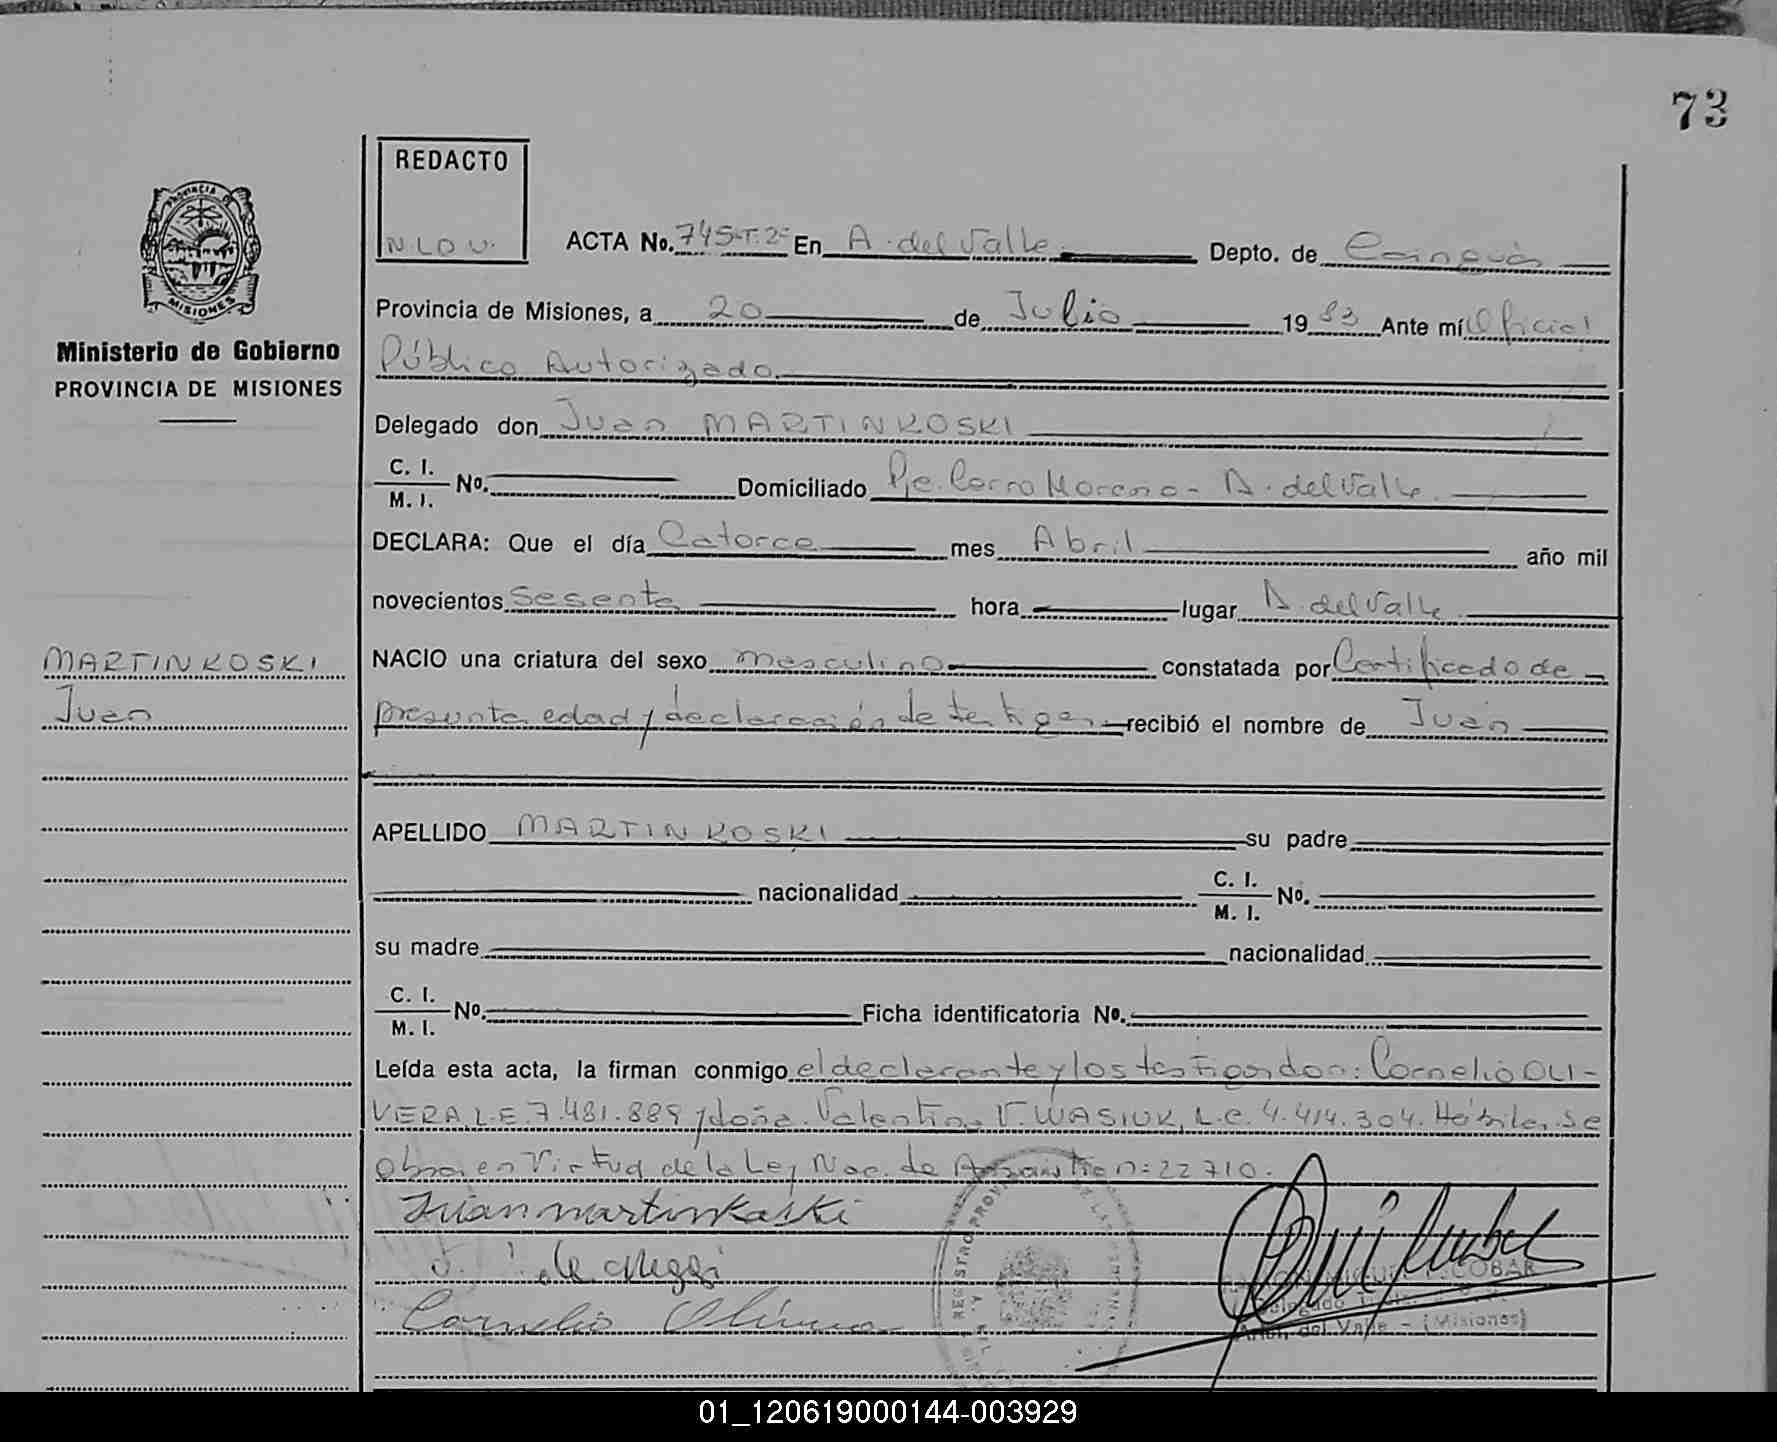 73
REDACTO
N.L.O.V.
PROVINCIA DE
MISIONES
Ministerio de Gobierno
PROVINCIA DE MISIONES
ACTA No. 745-T.2º En A. del Valle Depto. de Cainguás
Provincia de Misiones, a 20 de Julio 1983 Ante mí Oficial
Público Autorizado.
Delegado don Juan MARTINKOSKI
C. I. M. I. No. Domiciliado Pje. Cerro Moreno - A. del Valle.
DECLARA: Que el día Catorce mes Abril año mil
novecientos sesenta hora lugar A. del Valle
MARTINKOSKI
Juan
NACIO una criatura del sexo masculino constatada por Certificado de
presunta edad y declaración de testigos recibió el nombre de Juan
APELLIDO MARTINKOSKI su padre
nacionalidad C. I. M. I. No.
su madre nacionalidad
C. I. M. I. No. Ficha identificatoria No.
Leída esta acta, la firman conmigo el declarante y los testigos don: Cornelio OLI-
VERA, L.E. 7.481.889 y doña Valentina V. WASIUK, L.C. 4.414.304. Hábiles. Se
obra en Virtud de la Ley Nac. de Amnistía nº: 22710.
Juan martinkoski
de
Cornelio Olivera
REGISTRO PROVINCIAL DE LAS PERSONAS
ESCOBAR
Delegado
Arist. del Valle - (Misiones)
01_120619000144-003929